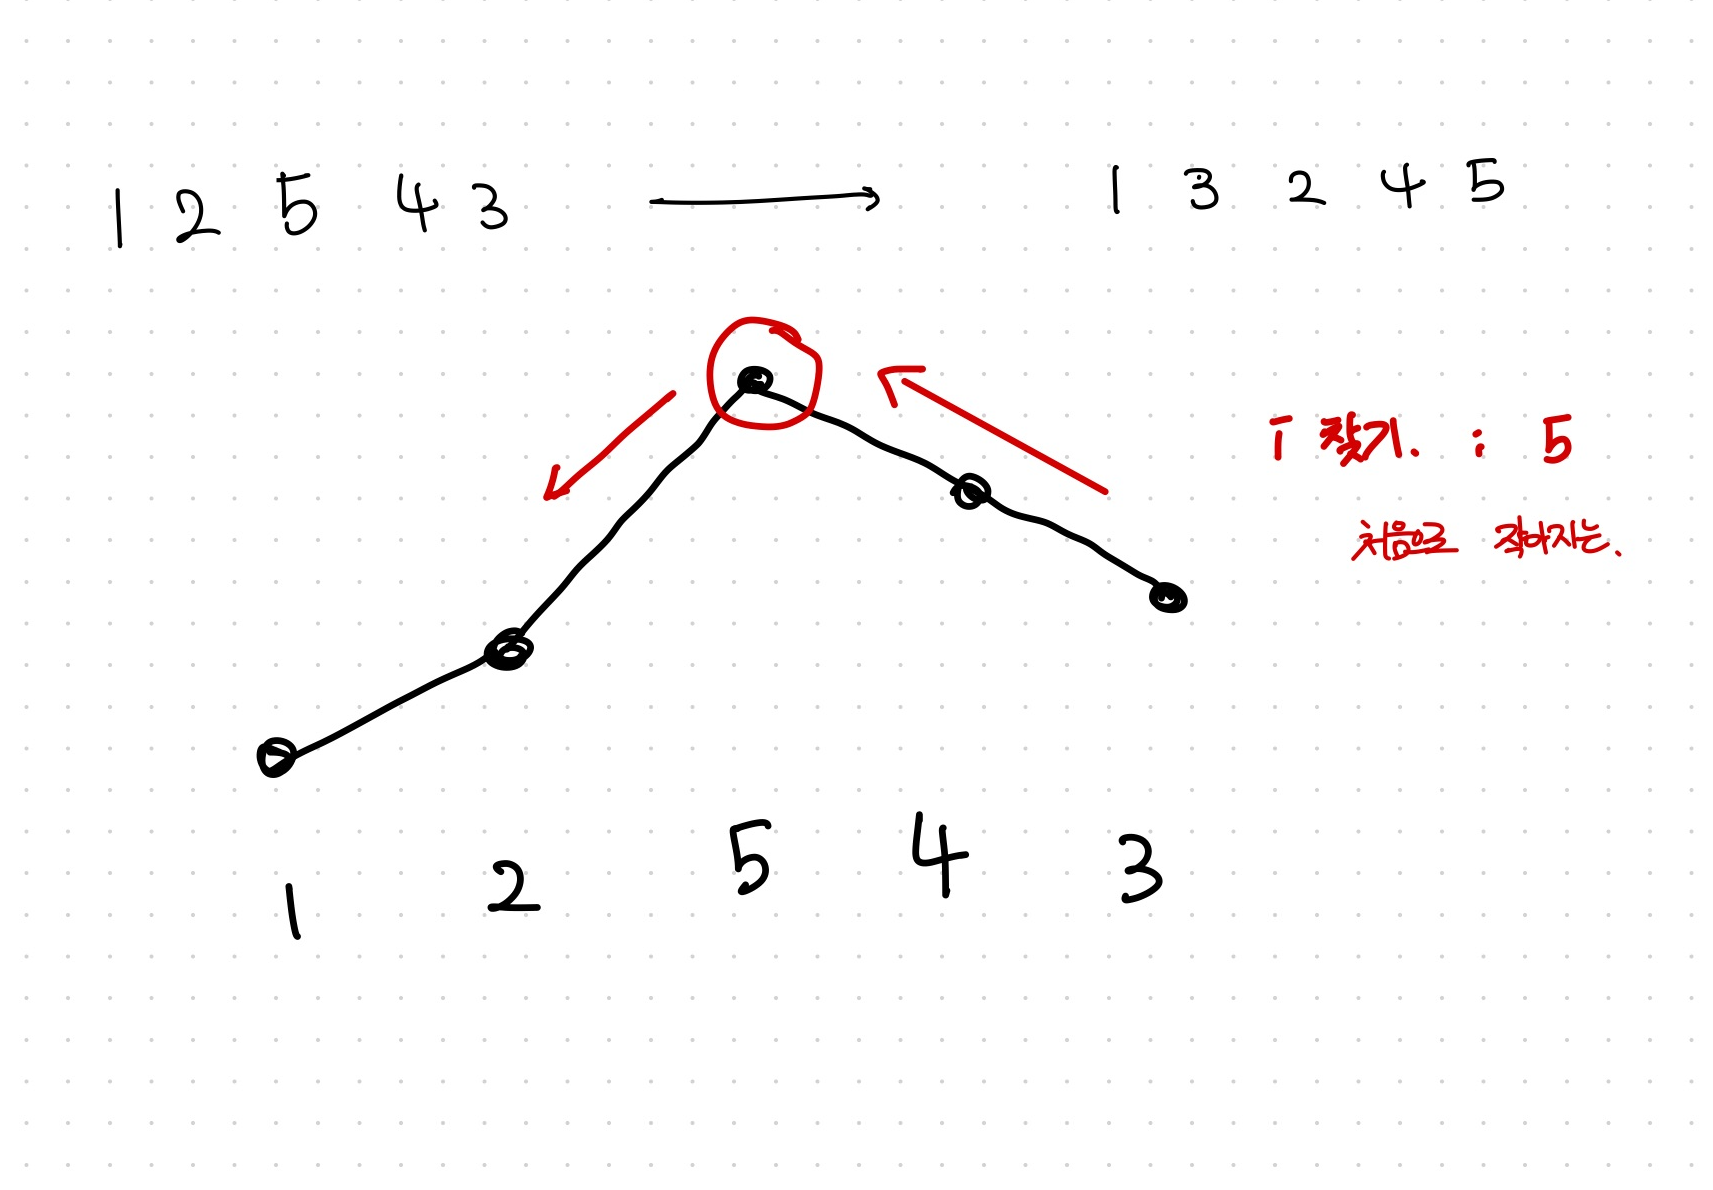 1 2 5 4 3 → 1 3 2 4 5
i 찾기. : 5
처음으로 작아지는.
1 2 5 4 3